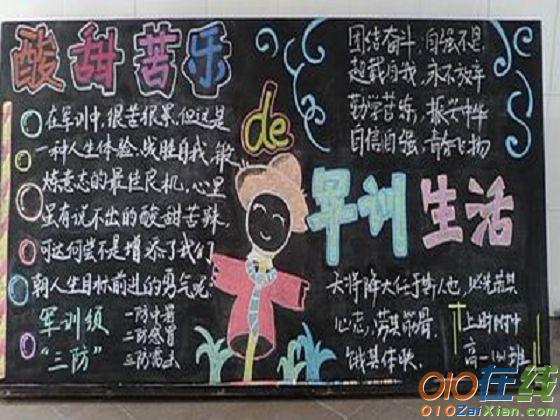 酸甜苦乐
de
军训生活
在军训中,很苦很累,但这是
一种人生体验,战胜自我,锻
炼意志的最佳良机,心里
虽有说不出的酸甜苦辣,
可这何尝不是增添了我们
朝人生目标前进的勇气呢
军训须
"三防"
一防中暑
二防感冒
三防雷击
团结奋斗,自强不息
超越自我,永不放弃
勤学苦乐,振兴中华
自信自强,青春飞扬
天将降大任于斯人也,必先苦其
心志,劳其筋骨
饿其体肤
高一
010在线
010ZaiXian.com